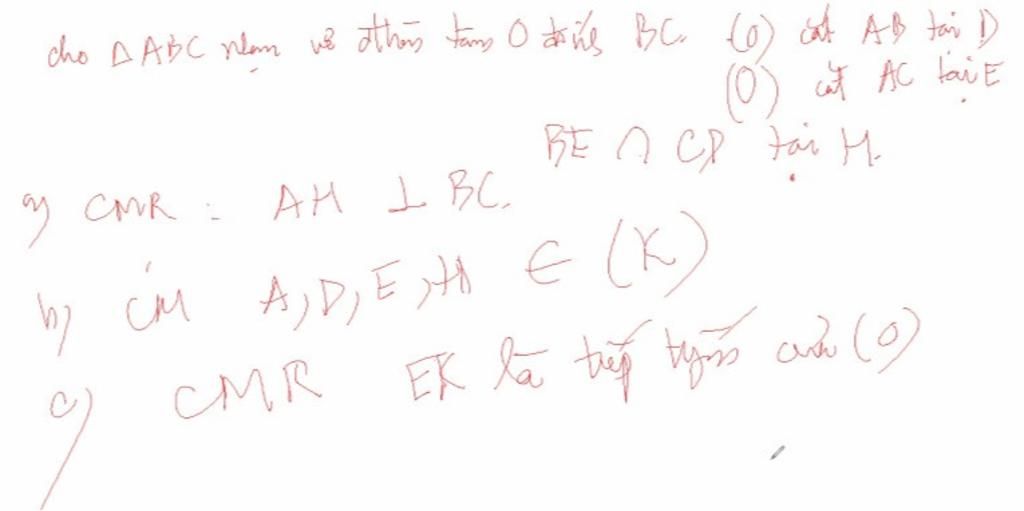 cho ΔABC nhọn vẽ đtròn tâm O đkính BC. (O) cắt AB tại D
(O) cắt AC tại E
BE ∩ CD tại H.
a) CMR : AH ⊥ BC.
b) CM A, D, E, H ∈ (K)
c) CMR EK là tiếp tuyến của (O)